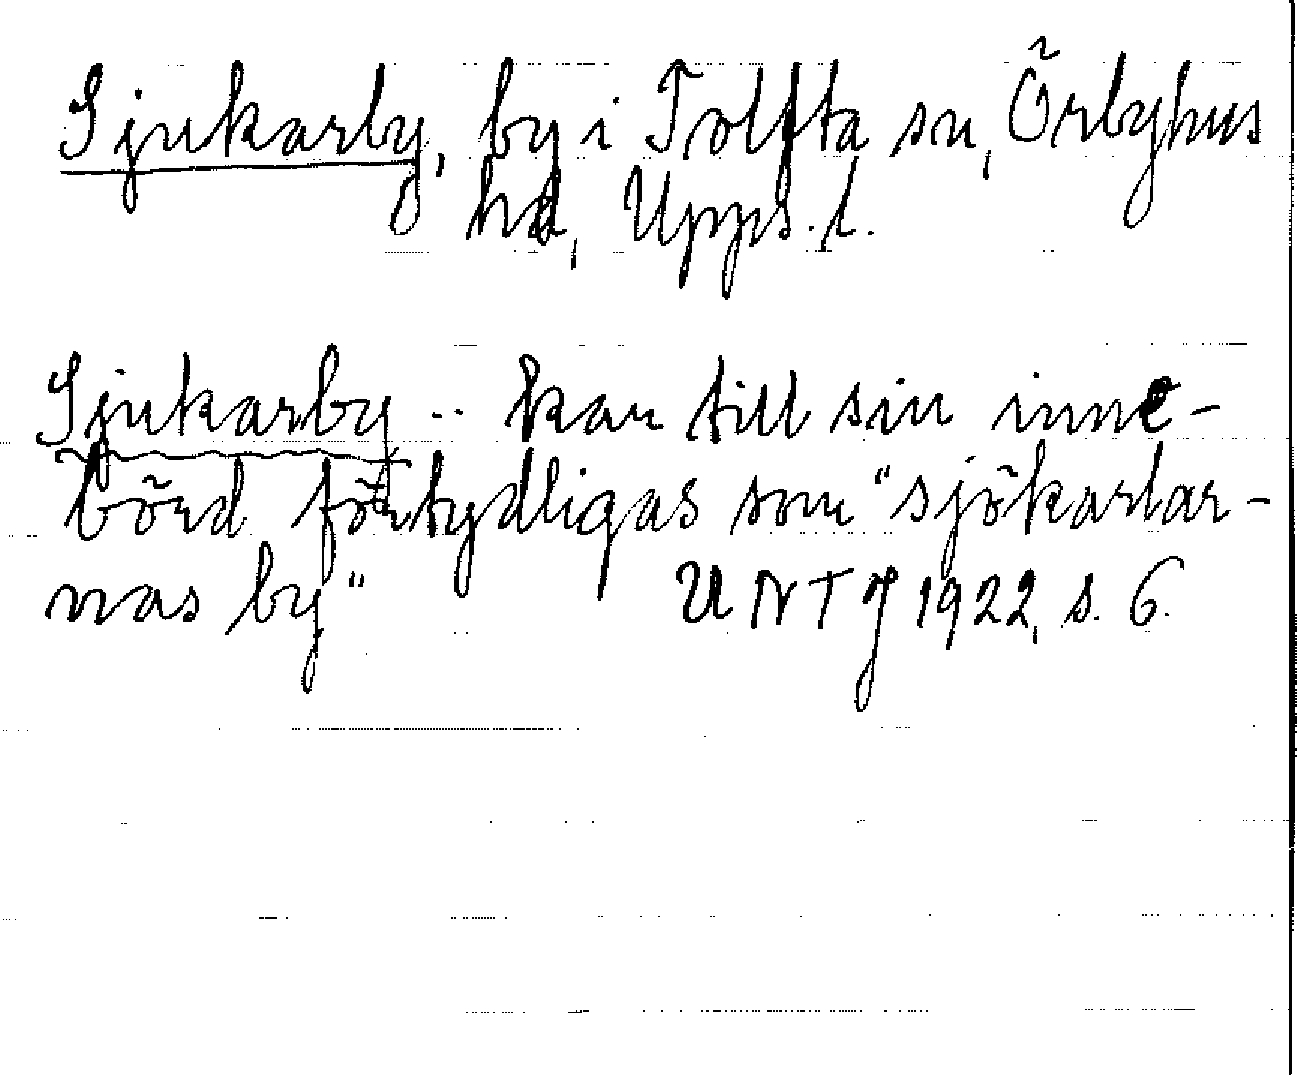 Sjukarby, by i Tolfta sn, Örbyhus
hd, Upps. l.
Sjukarby .. kan till sin inne-
börd förtydligas som "sjökarlar-
nas by" UNTJ 1922, s. 6.